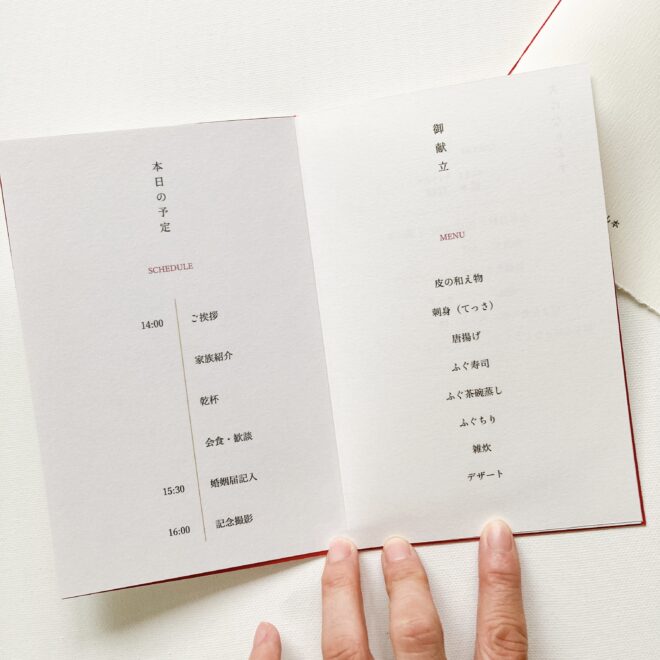 本日の予定
SCHEDULE
14:00 ご挨拶
家族紹介
乾杯
会食・歓談
15:30 婚姻届記入
16:00 記念撮影
御献立
MENU
皮の和え物
刺身（てっさ）
唐揚げ
ふぐ寿司
ふぐ茶碗蒸し
ふぐちり
雑炊
デザート